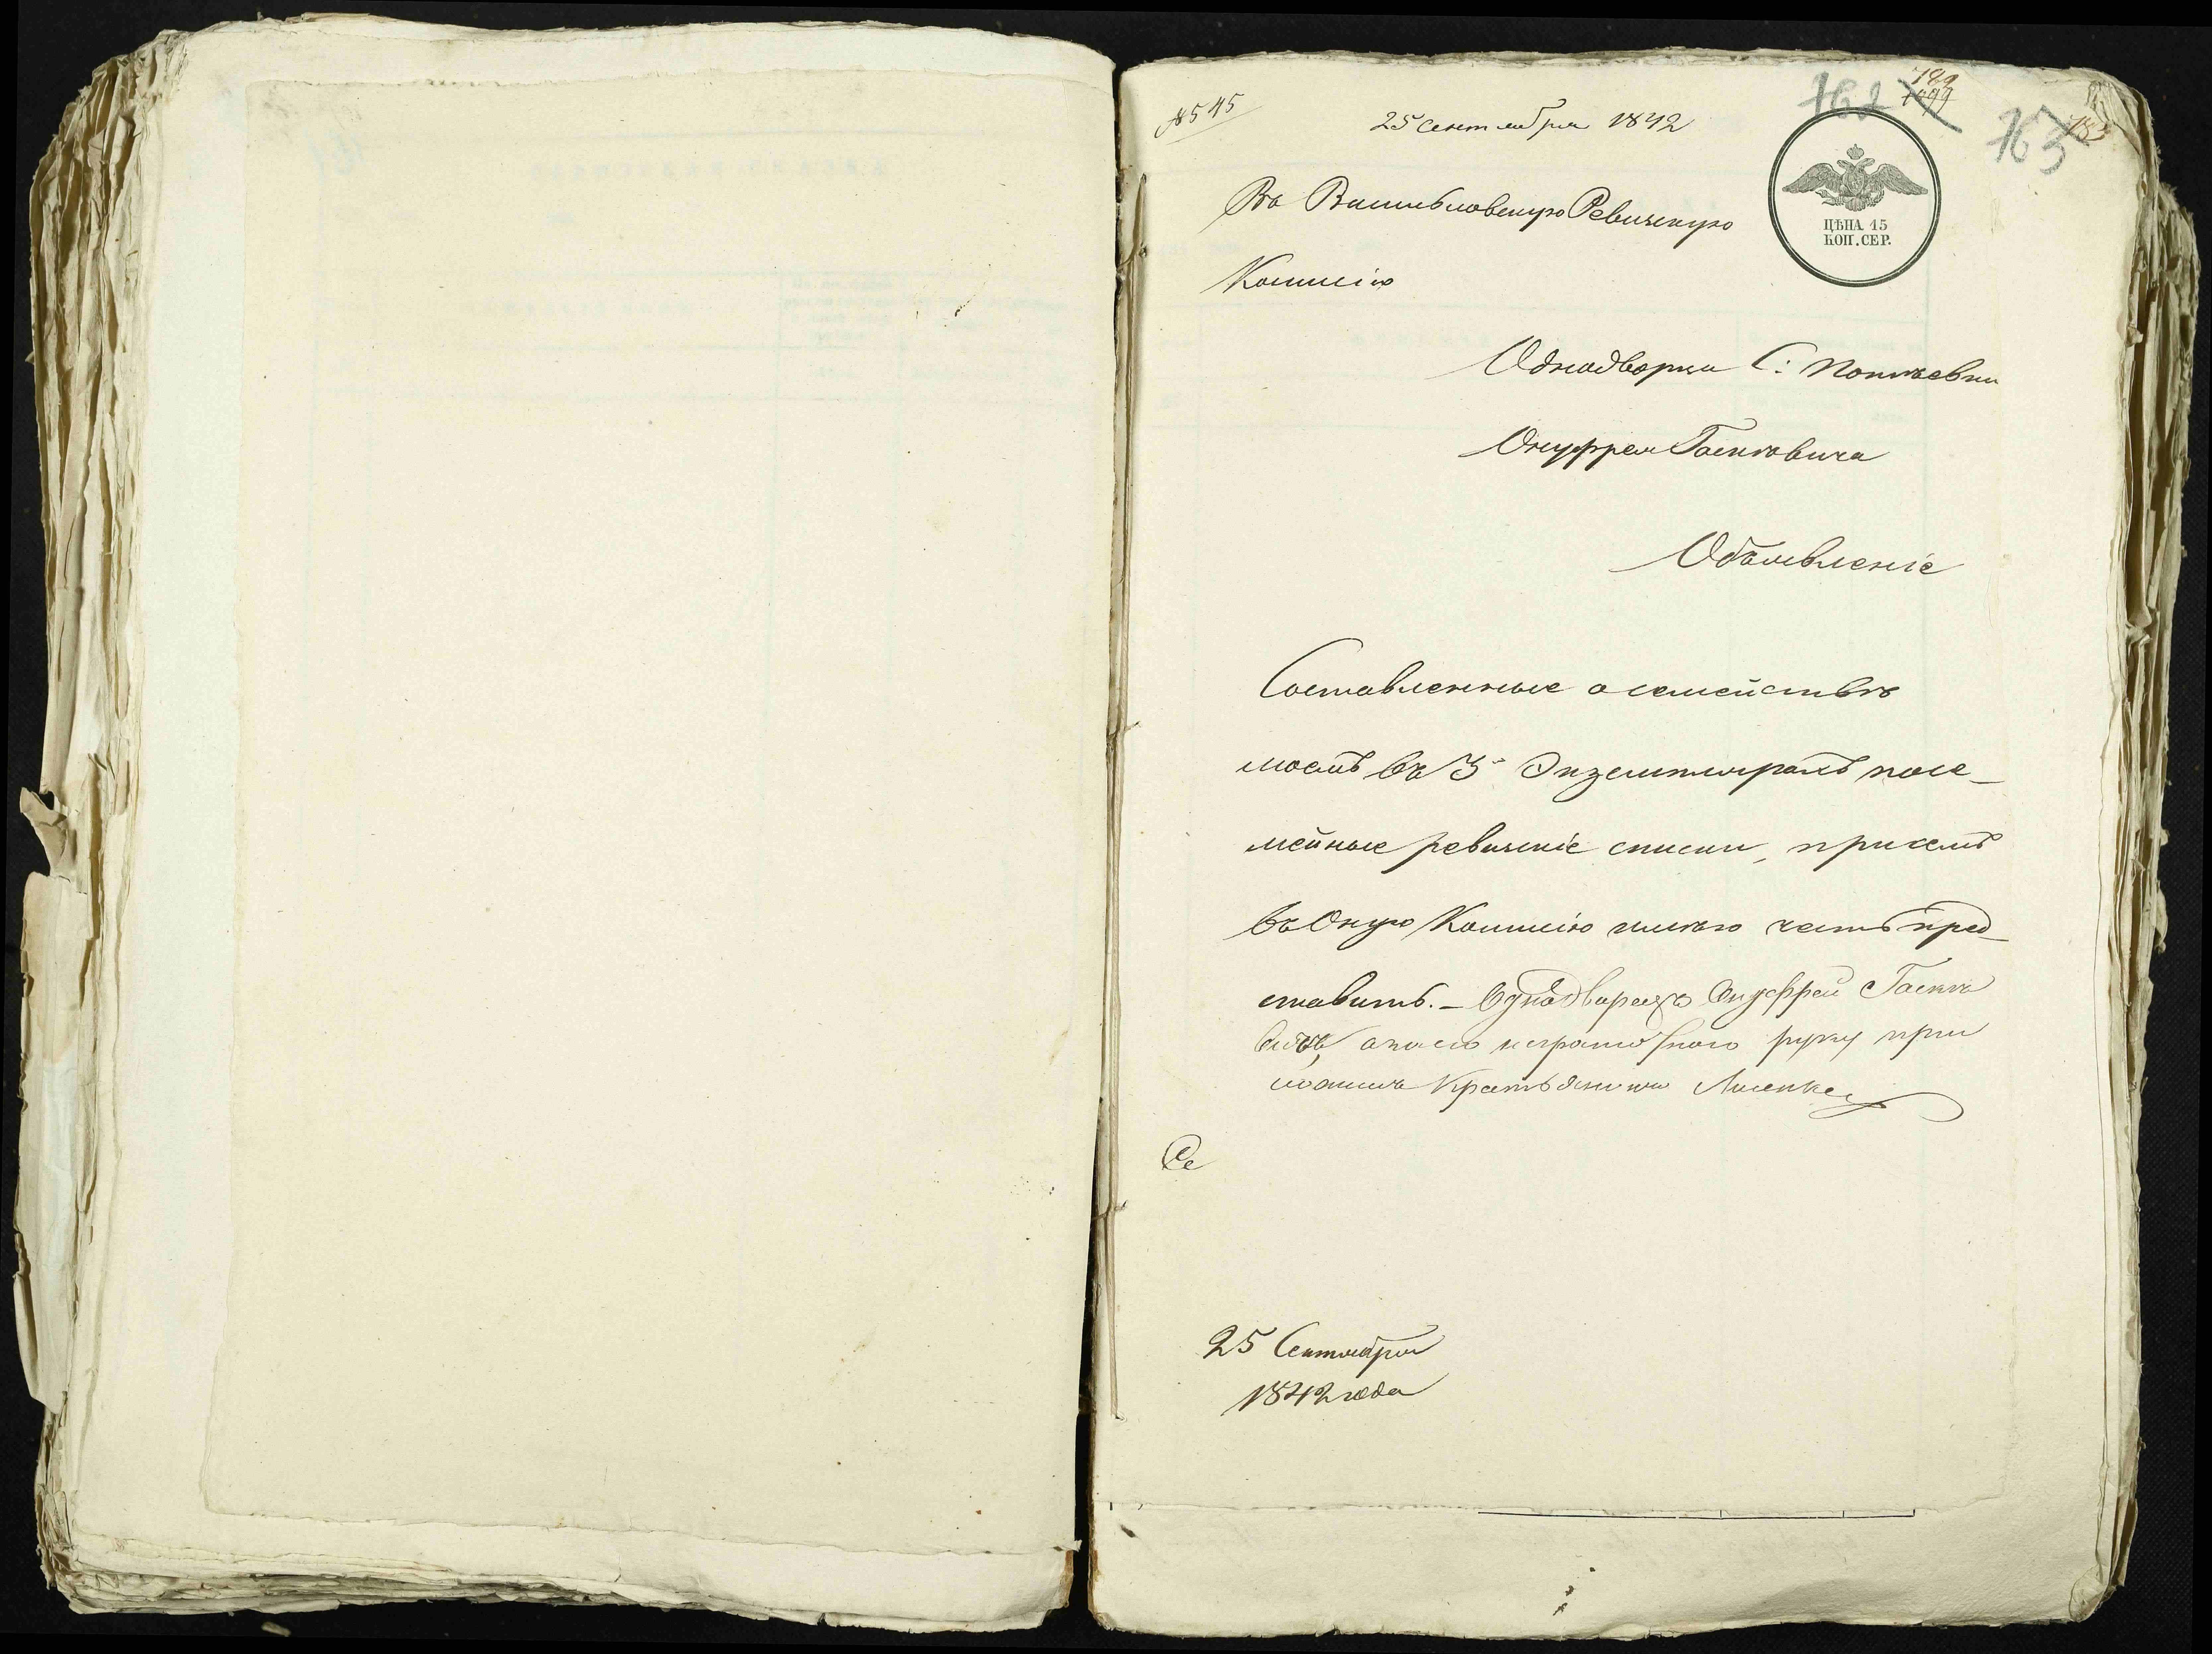 №545
25 сентября 1842
162
163
ЦѢНА 15
КОП. СЕР.
Въ Васильковскую Ревизскую
Комисію
Однодворца С:
Онуфрея Гаськовича
Объявленіе
Составленные о семействѣ
моемъ въ 3х Экземплярахъ посе-
мейные ревизкіе списки, при семъ
въ Оную Комисію имѣю честь пред-
ставить. - Однодворецъ Онуфрей Гаско
вичъ, а вместо неграмотного руку при
25 Сентября
1842 года